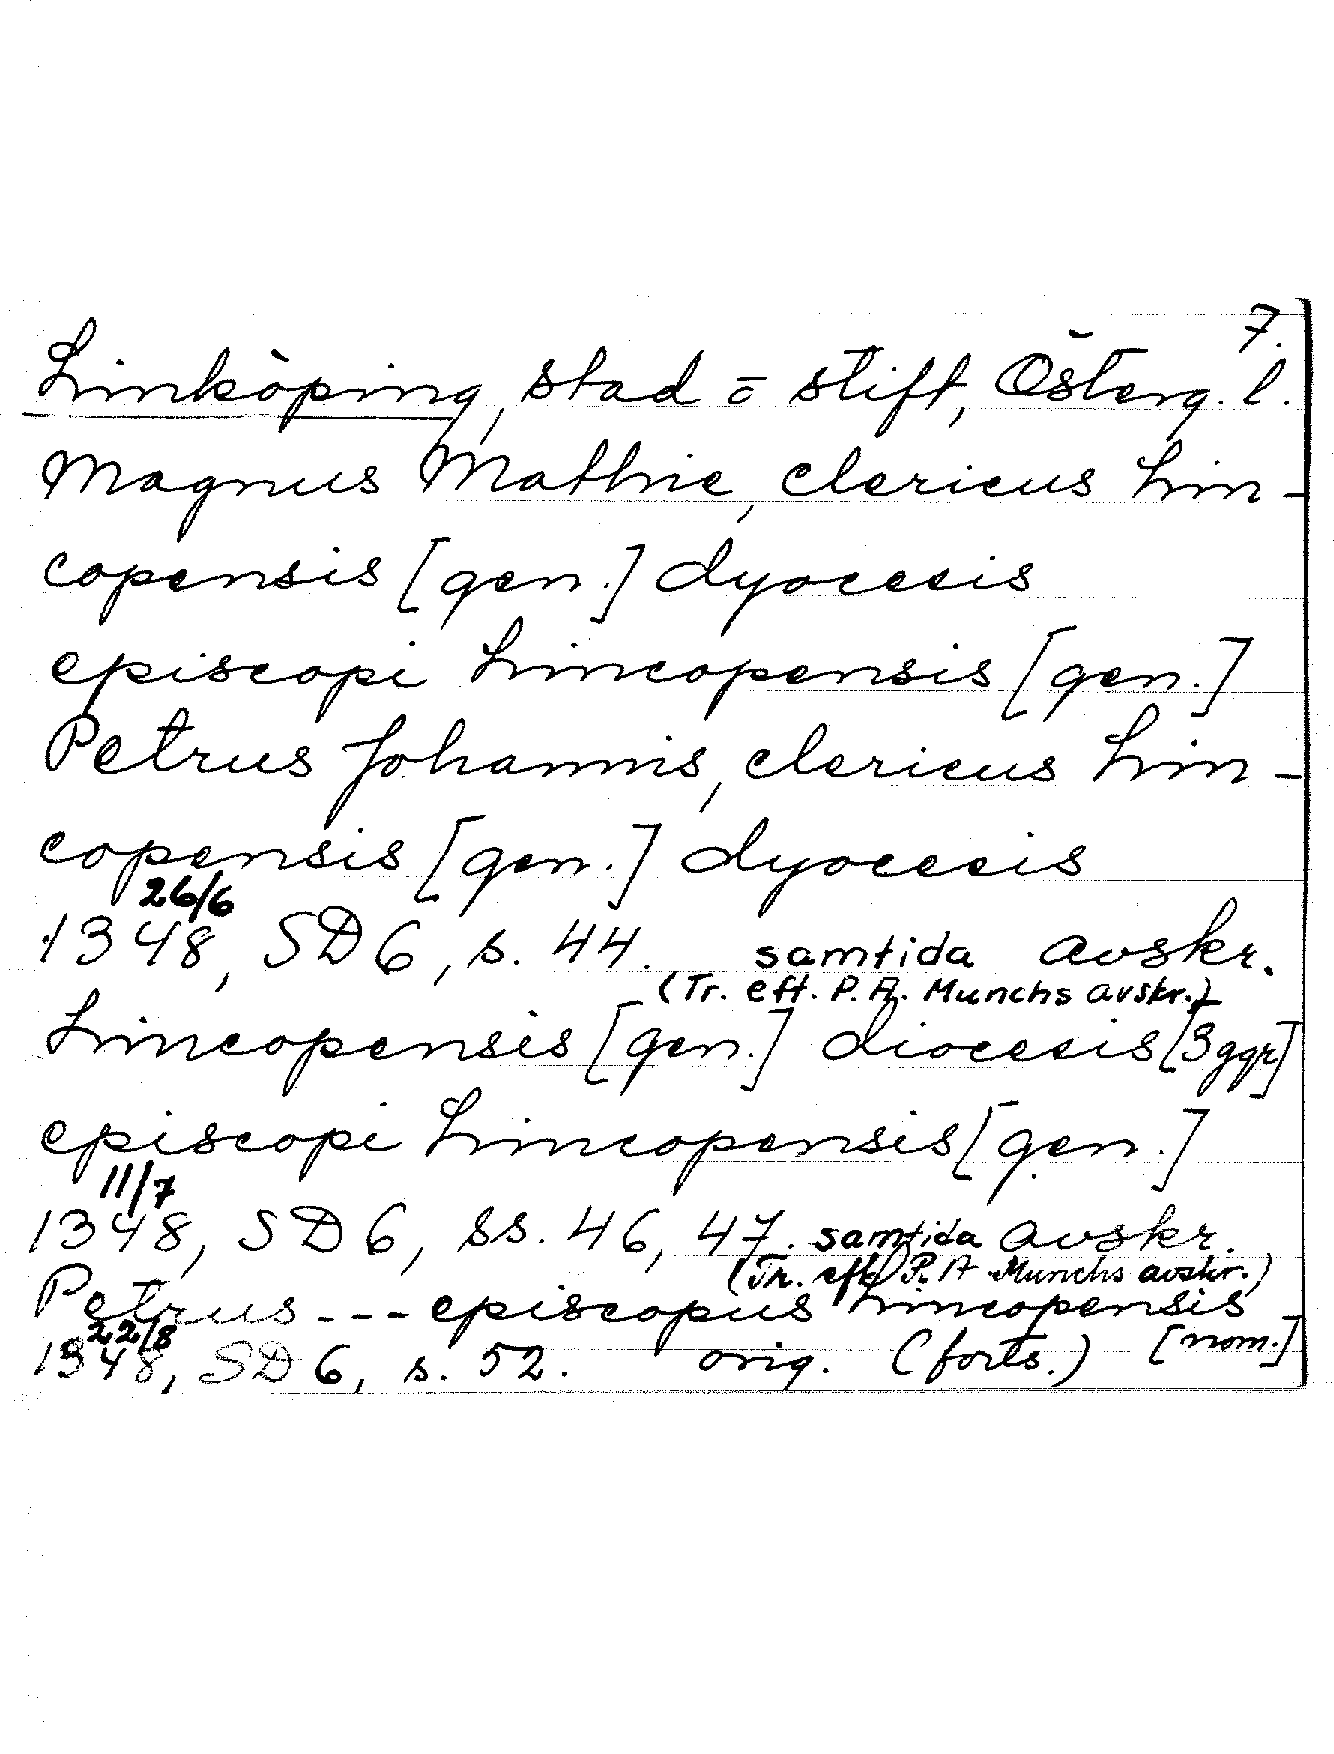 7.
Linköping, stad o stift, Österg. l.
Magnus Mathie, clericus Lin-
copensis [gen.] dyocesis
episcopi Lincopensis [gen.]
Petrus Johannis, clericus Lin-
copensis [gen.] dyocesis
26/6
1348, SD 6, s. 44. samtida avskr.
(Tr. eft. P. A. Munchs avskr.)
Lincopensis [gen.] diocesis [3 ggr]
episcopi Lincopensis [gen.]
11/7
1348, SD 6, ss. 46, 47. samtida avskr.
(Tr. eft P. A Munchs avskr.)
Petrus --- episcopus Lincopensis
22/8
1348, SD 6, s. 52. orig. (forts.) [nom.]